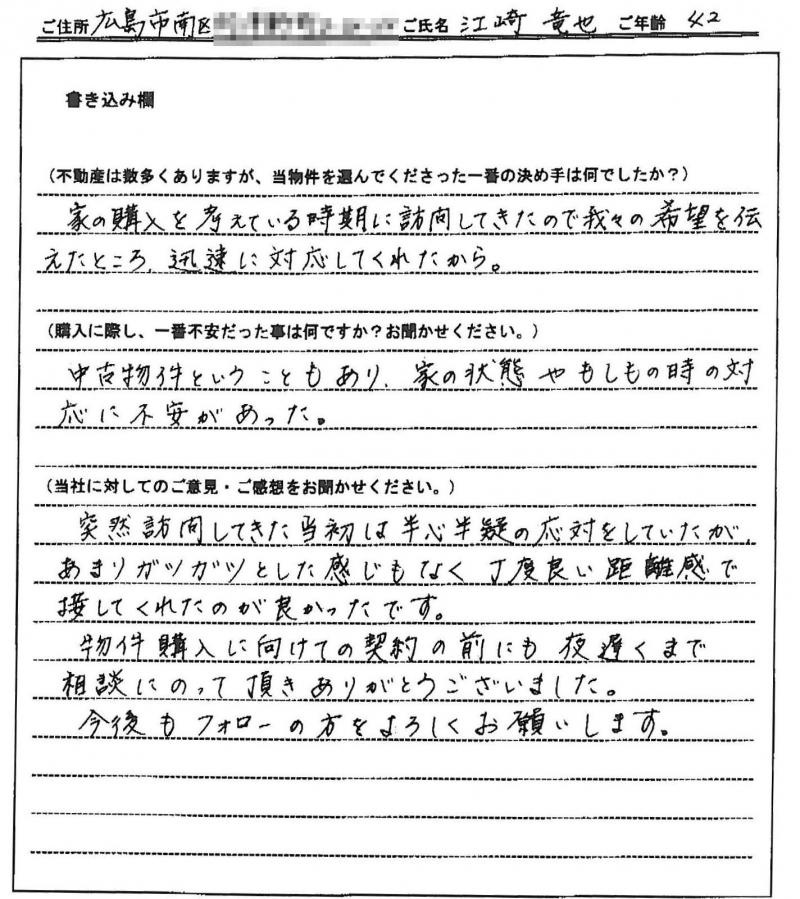 ご住所 広島市南区 ご氏名 江崎 竜也 ご年齢 42
書き込み欄
（不動産は数多くありますが、当物件を選んでくださった一番の決め手は何でしたか？）
家の購入を考えている時期に訪問してきたので我々の希望を伝
えたところ、迅速に対応してくれたから。
（購入に際し、一番不安だった事は何ですか？お聞かせください。）
中古物件ということもあり、家の状態やもしもの時の対
応に不安があった。
（当社に対してのご意見・ご感想をお聞かせください。）
突然訪問してきた当初は半心半疑の応対をしていたが、
あまりガツガツとした感じもなく丁度良い距離感で
接してくれたのが良かったです。
物件購入に向けての契約の前にも夜遅くまで
相談にのって頂きありがとうございました。
今後もフォローの方をよろしくお願いします。